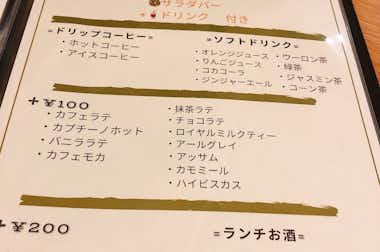 サラダバー
+ ドリンク 付き
=ドリップコーヒー=
・ホットコーヒー
・アイスコーヒー
=ソフトドリンク=
・オレンジジュース
・りんごジュース
・コカコーラ
・ジンジャーエール
・ウーロン茶
・緑茶
・ジャスミン茶
・コーン茶
+¥100
・カフェラテ
・カプチーノホット
・バニララテ
・カフェモカ
・抹茶ラテ
・チョコラテ
・ロイヤルミルクティー
・アールグレイ
・アッサム
・カモミール
・ハイビスカス
+¥200
=ランチお酒=